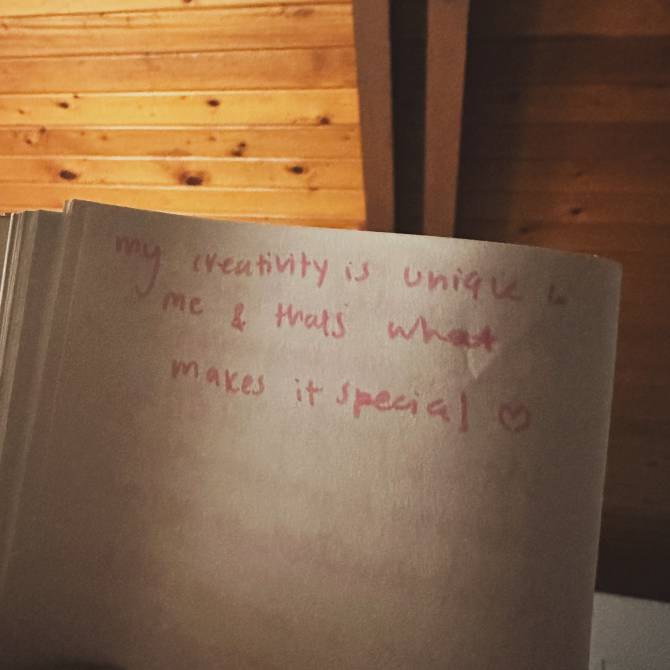 my creativity is unique to
me & thats what
makes it special ♡